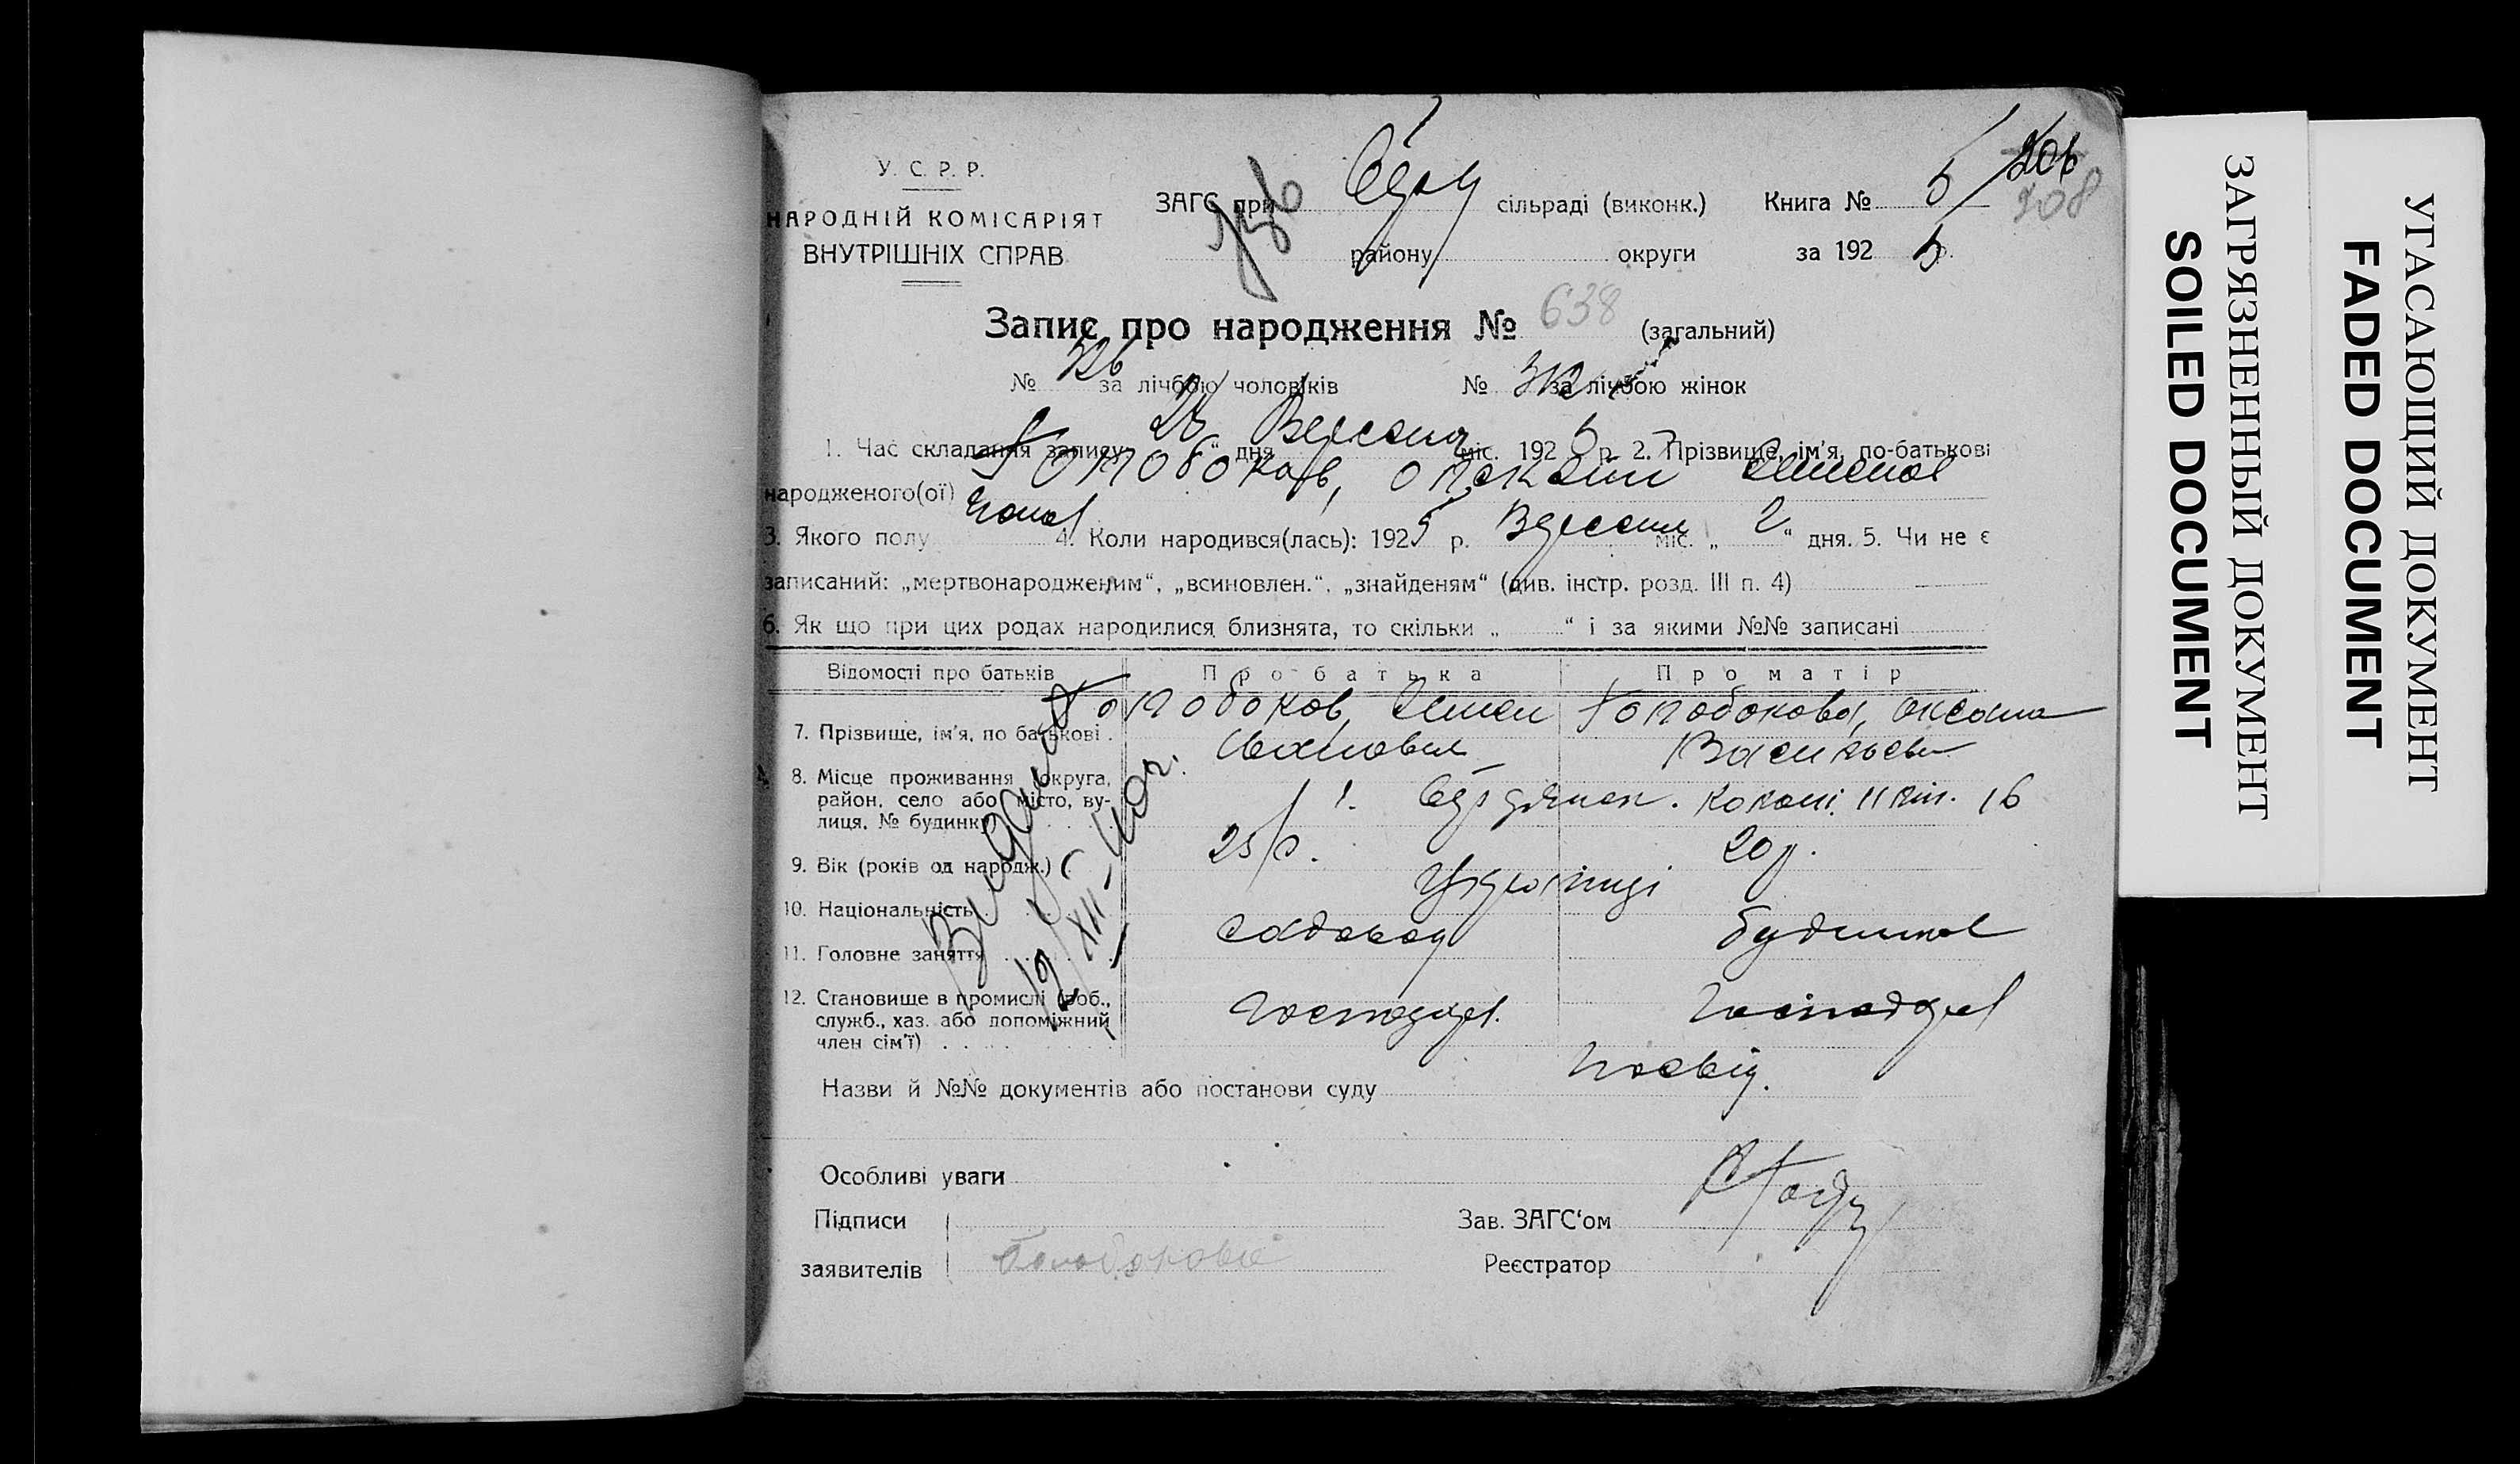 У. С. Р. Р.
НАРОДНІЙ КОМІСАРІЯТ
ВНУТРІШНІХ СПРАВ
ЗАГС при сільраді (виконк.)
району округи
Книга № 5
за 1925 р.
206
208
Запис про народження № 638 (загальний)
№ 326 за лічбою чоловіків № 312 за лічбою жінок
1. Час складання запису „ “ дня Вересня міс. 1925 р. 2. Прізвище, ім'я, по-батькові
народженого(ої) Голобоков, Семенов
3. Якого полу 4. Коли народився(лась): 1925 р. Вересня міс. „ 2 “ дня. 5. Чи не є
записаний: „мертвонародженим“, „всиновлен.“, „знайденям“ (див. інстр. розд. III п. 4)
6. Як що при цих родах народилися близнята, то скільки „ “ і за якими №№ записані
Відомості про батьків Про батька Про матір
7. Прізвище, ім'я, по батькові . Голобоков, Семен Голобокова, Оксана
Васильевн
8. Місце проживання (округа,
район, село або місто, ву-
лиця, № будинку)
Бердянск. 16
9. Вік (років од народж.) 25 р. 20 р.
10. Національність Українці
11. Головне заняття садовод
12. Становище в промислі (роб.,
служб., хаз. або допоміжний
член сім'ї)
Господар.
Видано
19/XII-40г.
Назви й №№ документів або постанови суду посвід.
Особливі уваги
Підписи
заявителів
Голобокова
Зав. ЗАГС'ом
Реєстратор
ЗАГРЯЗНЕННЫЙ ДОКУМЕНТ
SOILED DOCUMENT
УГАСАЮЩИЙ ДОКУМЕНТ
FADED DOCUMENT